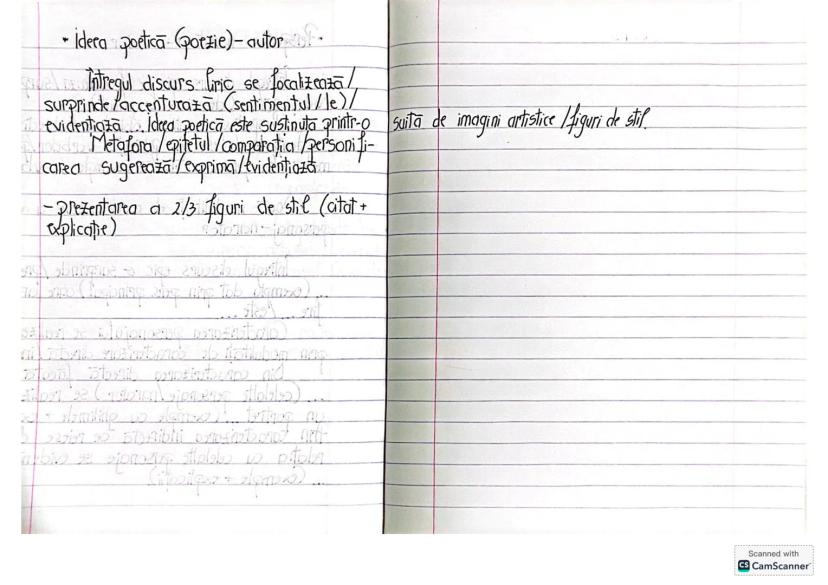 • Ideea poetică (poezie) - autor
Întregul discurs liric se focalizează/
surprinde/accenturază (sentimentul/le)/
evidențiază ... Ideea poetică este susținută printr-o suită de imagini artistice/figuri de stil.
Metafora/epitetul/comparația/personifi-
carea sugerează/exprimă/evidențiază
- prezentarea a 2/3 figuri de stil (citat +
explicație)
Scanned with
CS CamScanner